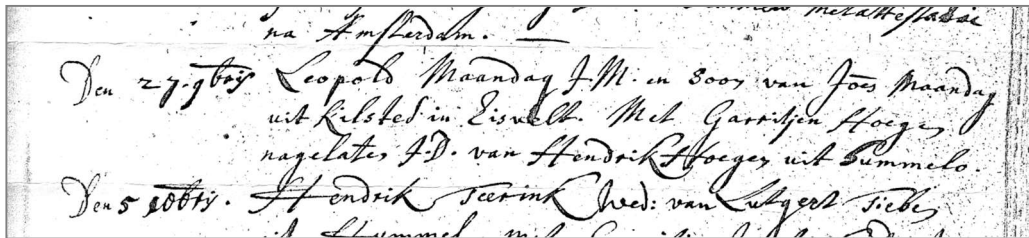 met attestatie
na Amsterdam. —
Den 27. 9bris Leopold Maandag J.M. en Soon van Joes Maandag
uit Kilsted in Eisvelt. Met Garritjen Hoegen
nagelaten J.D. van Hendrik Hoegen uit Summelo.
Den 5 10bris. Hendrik Teerink Wed: van Lutgert Tieben
uit Hummel met